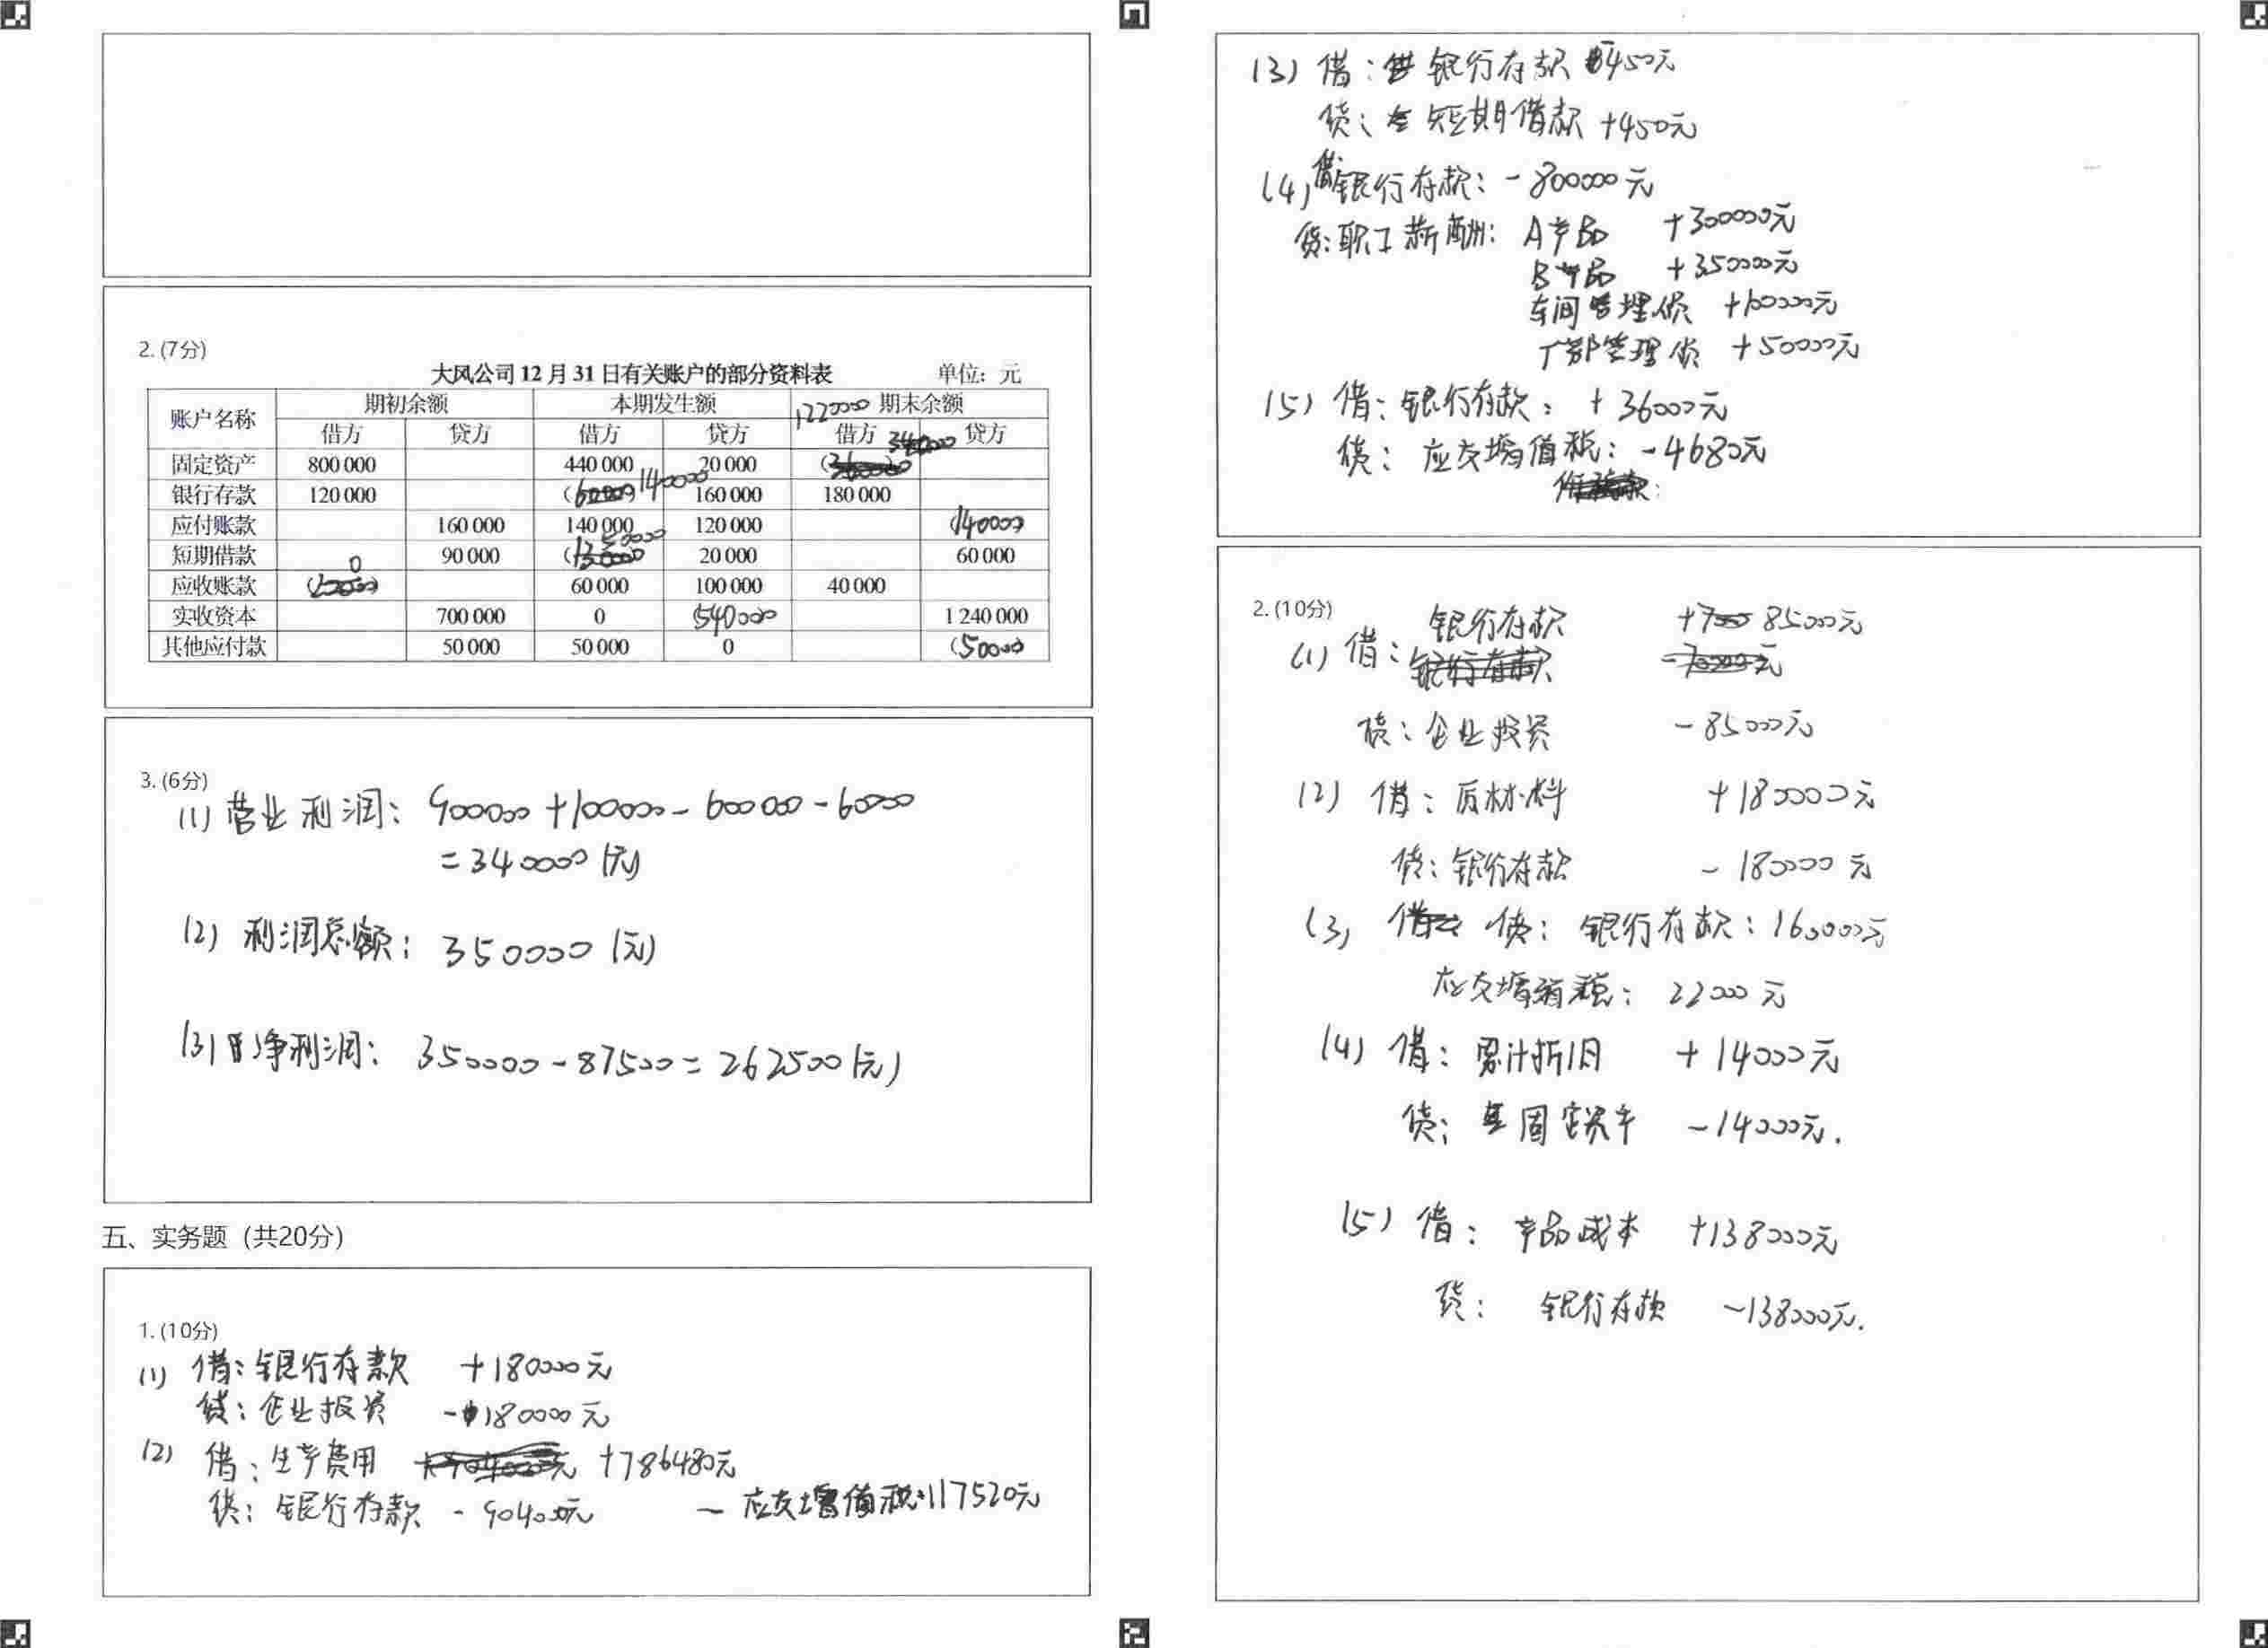 2. (7分)
大风公司12月31日有关账户的部分资料表 单位：元
账户名称 期初余额 本期发生额 1220000 期末余额
借方 贷方 借方 贷方 借方 贷方
固定资产 800 000 440 000 20 000
银行存款 120 000 140000 160 000 180 000
应付账款 160 000 140 000 120 000 140000
短期借款 90 000 50000 20 000 60 000
应收账款 0 60 000 100 000 40 000
实收资本 700 000 0 540000 1 240 000
其他应付款 50 000 50 000 0 (50000
3. (6分)
(1) 营业利润： 900000+100000-600000-60000
=340000(元)
(2) 利润总额： 350000(元)
(3) 净利润： 350000-87500=262500(元)
五、实务题（共20分）
1. (10分)
(1) 借：银行存款 +180000元
贷：企业投资 -180000元
(2) 借：生产费用 +786480元
贷：银行存款 -904000元 - 应交增值税：117520元
(3) 借：银行存款 450元
贷：短期借款 +450元
(4) 借银行存款：-800000元
贷：职工薪酬： A产品 +300000元
B产品 +350000元
车间管理 +100000元
厂部管理 +50000元
(5) 借：银行存款： +36000元
贷：应交增值税：-4680元
2. (10分)
(1) 借： 银行存款 85000元
贷：企业投资 -85000元
(2) 借：原材料 +180000元
贷：银行存款 -180000元
(3) 贷： 银行存款：160000元
应交增值税： 22000元
(4) 借：累计折旧 +14000元
贷：固定资产 -14000元.
(5) 借： 产品成本 +138000元
贷： 银行存款 -138000元.